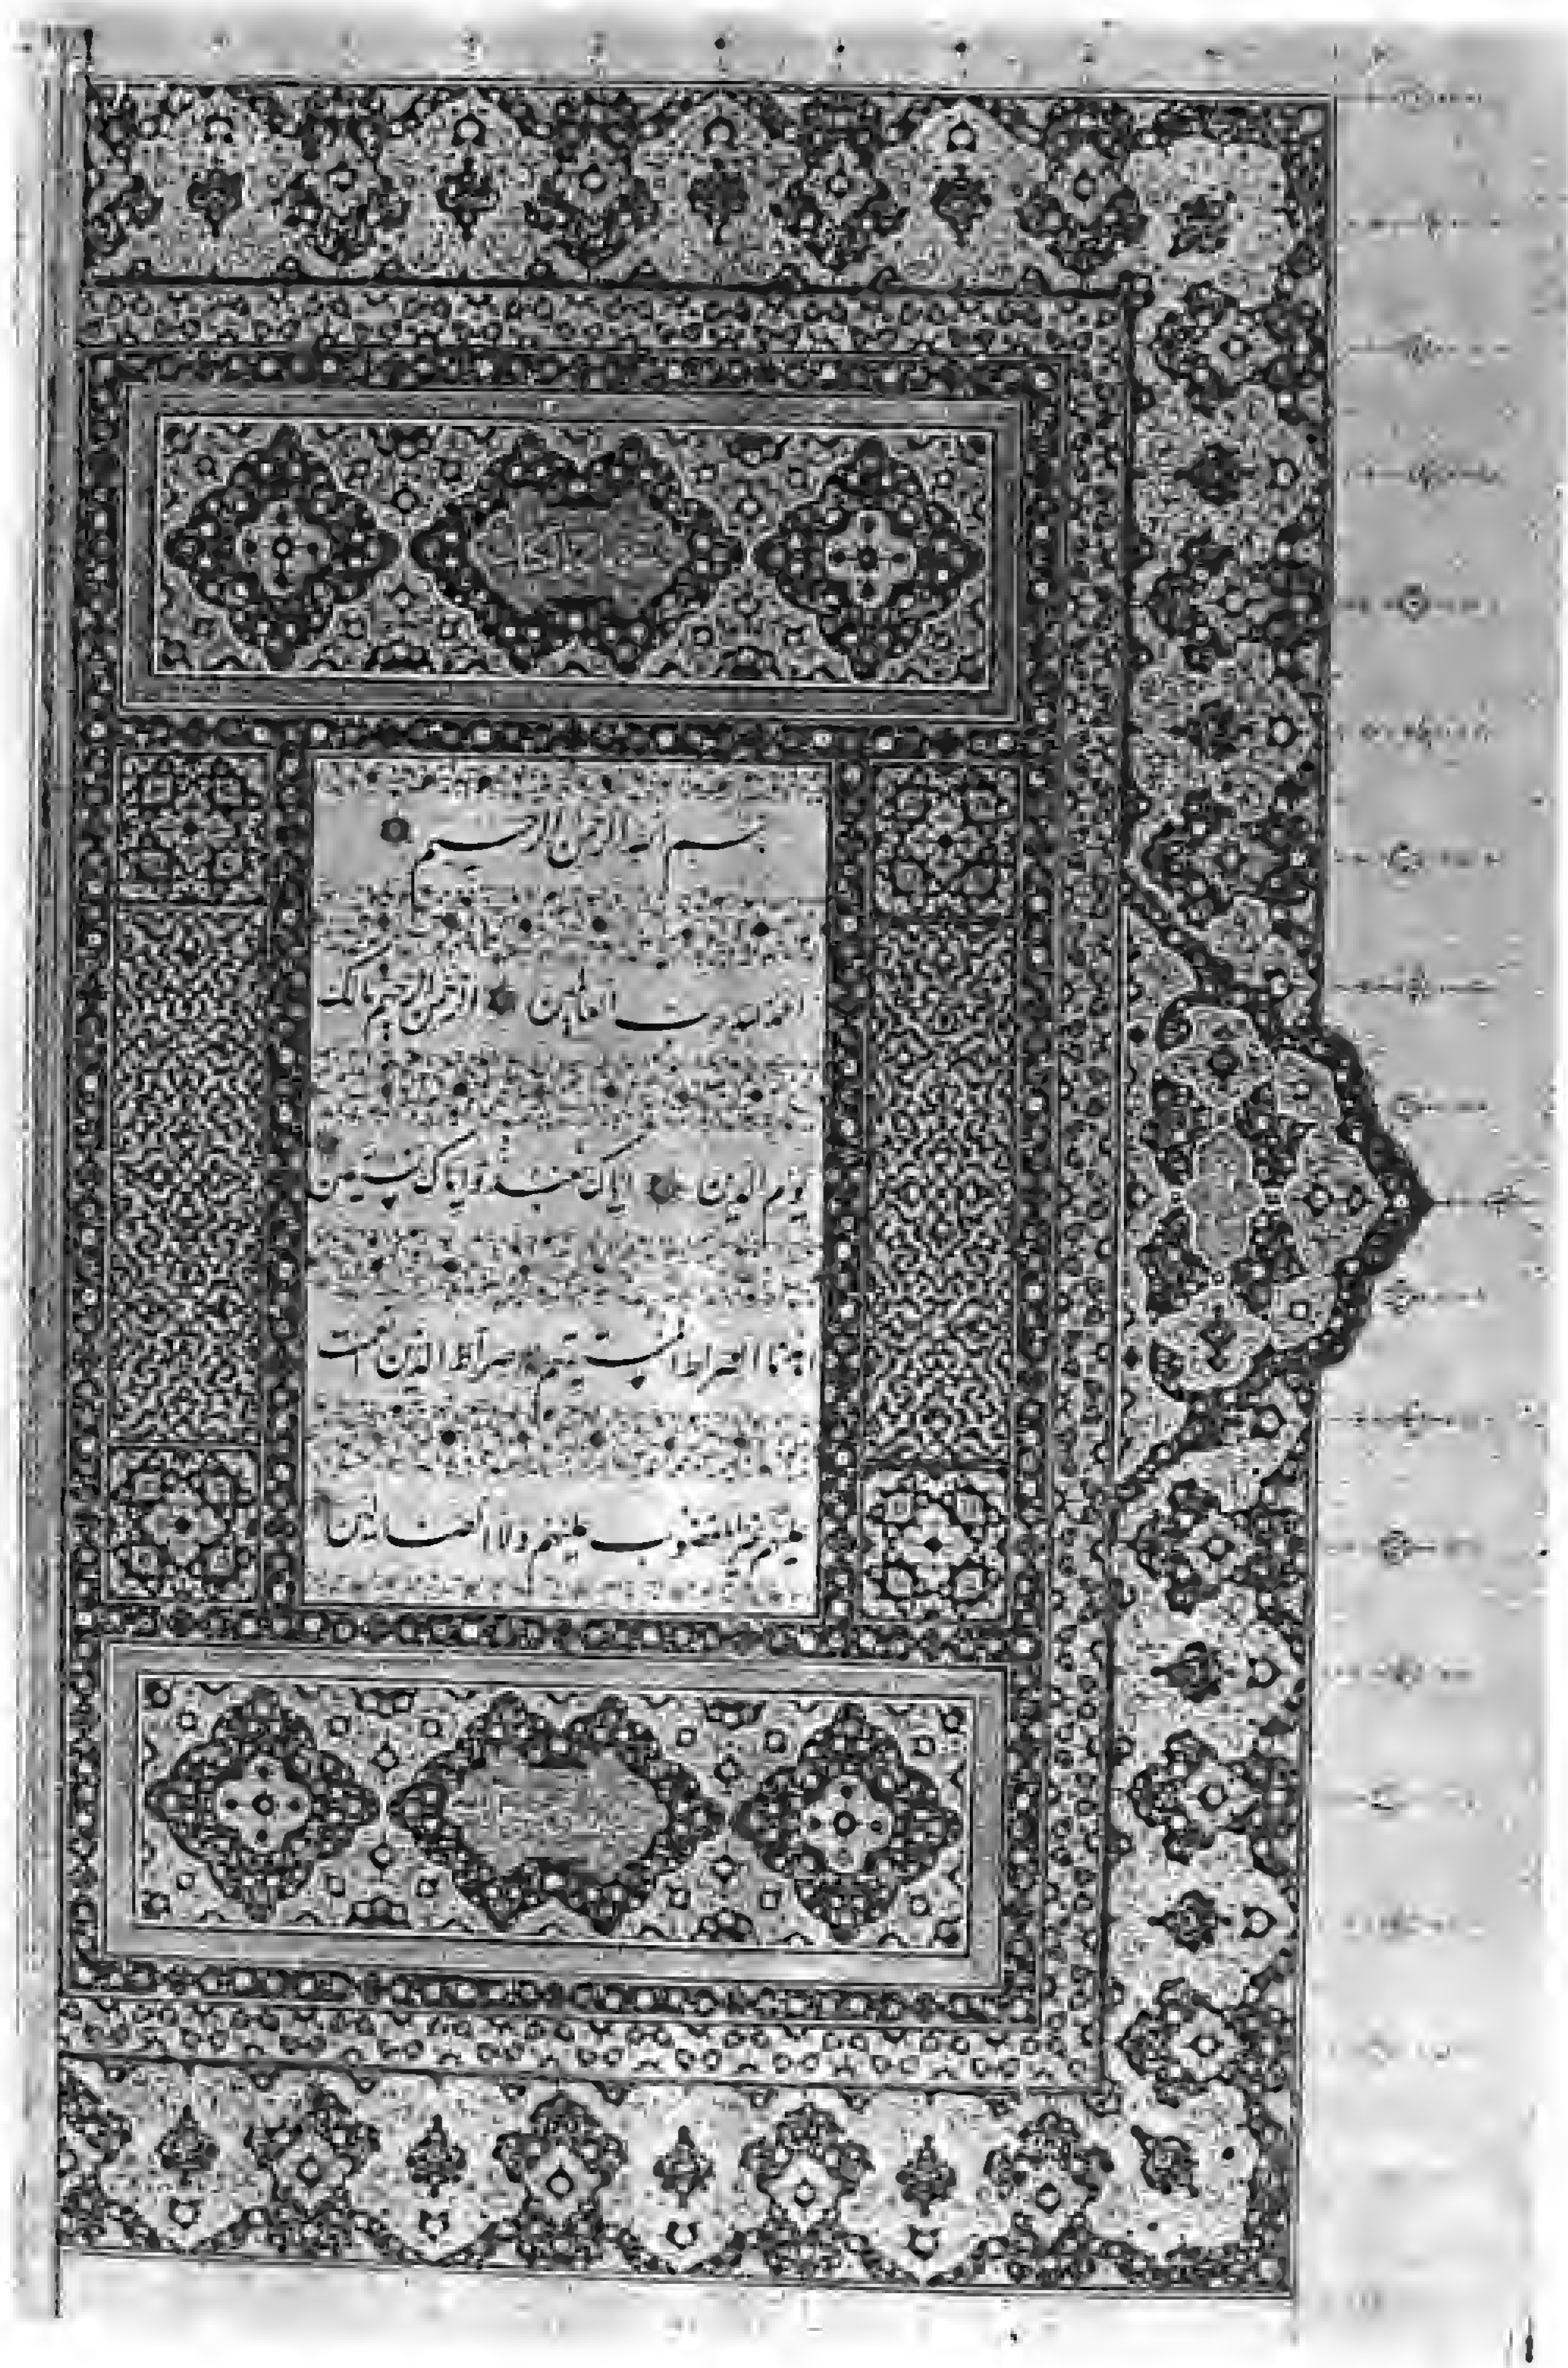 بسم الله الرحمن الرحيم
الحمد لله رب العالمين الرحمن الرحيم مالك
يوم الدين اياك نعبد و اياك نستعين
اهدنا الصراط المستقيم صراط الذين انعمت
عليهم غير المغضوب عليهم ولا الضالين